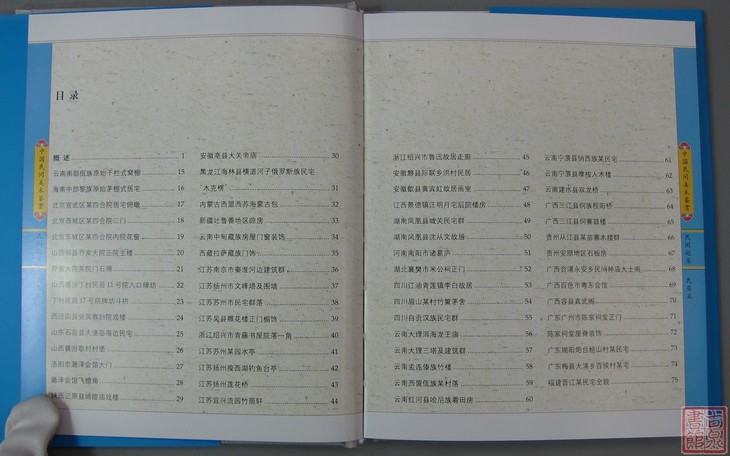 目录
概述 1
云南南部佤族原始干栏式窝棚 15
海南中部黎族原始茅棚式居宅 16
北京宣武区某四合院居宅俯瞰 17
北京西城区某四合院二门 18
北京东城区某四合院内院花窗 19
山西祁县乔家大院正院主楼 20
乔家大院某院门石狮 21
22
丁村民居17号院牌坊斗拱 23
24
山东石岛县大渔岛海边民宅 25
山西襄汾敬村村堡 26
洛阳市潞泽会馆大门 27
潞泽会馆飞檐角 28
29
安徽亳县大关帝庙 30
黑龙江海林县横道河子俄罗斯族民宅
“木克楞” 31
内蒙古西里西苏海蒙古包 32
新疆吐鲁番地区晾房 33
云南中甸藏族房屋门窗装饰 34
西藏拉萨藏族门饰 35
江苏南京市秦淮河边建筑群 36
江苏扬州市文峰塔及围墙 37
江苏苏州市民宅群落 38
江苏吴县雕花楼正门楣饰 39
浙江绍兴市青藤书屋院落一角 40
江苏苏州某园水亭 41
江苏扬州瘦西湖钓鱼台亭 42
江苏扬州莲花桥 43
江苏宜兴流园竹丽轩 44
浙江绍兴市鲁迅故居走廊 45
安徽黟县际联乡洪村民居 46
安徽歙县黄宾虹故居画室 47
江西景德镇江明月宅后院楼房 48
湖南凤凰县城关民宅群 49
湖南凤凰县沈从文故居 50
河南南阳市诸葛庐 51
湖北襄樊市米公祠正门 52
四川江油青莲镇李白故居 53
四川眉山某村竹篾茅舍 54
四川自贡汉族民宅群 55
云南大理洱海龙王庙 56
云南大理三塔及建筑群 57
云南孟连傣族竹楼 58
云南西盟佤族某村落 59
云南红河县哈尼族着田房 60
云南宁蒗县纳西族某民宅 61
云南宁蒗县摩梭人木楼 62
云南建水县双龙桥 63
广西三江县侗族程阳桥 64
广西三江县侗寨鼓楼 65
贵州从江县某苗寨木楼群 66
贵州安顺地区石板房 67
广西合浦永安乡民间祠庙大士阁 68
广西百色市粤东会馆 69
广西容县真武阁 70
广东广州市陈家祠堂正门 71
陈家祠堂屋脊装饰 72
广东揭阳炮台桂山村某民宅 73
广东梅县大浦乡百侯村某宅 74
福建晋江某民宅全貌 75
中国民间美术鉴赏
中国民间美术鉴赏